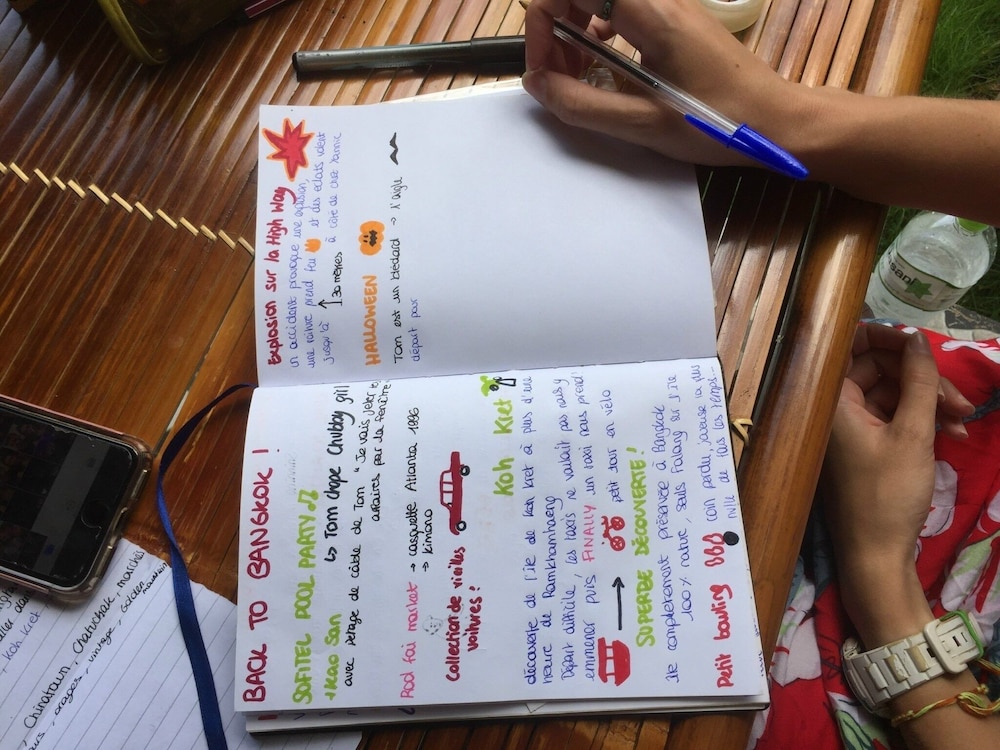 BACK TO BANGKOK !
SOFITEL POOL PARTY
→ Kao San ↳ Tom chope Chubby girl
avec pétage de câble de Tom " Je vais jeter tes
affaires par la fenêtre
Rod fai market → casquette Atlanta 1996
→ kimono
Collection de vieilles
voitures !
Koh Kret
découverte de l'île de Koh Kret à plus d'une
heure de Ramkhamhaeng
Départ difficile, les taxis ne voulait pas nous y
emmener puis FINALLY un taxi nous prend !
→ petit tour en vélo
SUPERBE DÉCOUVERTE !
île complètement préservée à Bangkok
100% nature, seuls Falang sur l'île
Petit bowling coin perdu, joueuse la plus
nulle de tous les temps...
Explosion sur la High Way
un accident provoque une explosion,
une voiture prend feu et des éclats volent
jusqu'à → 30 mètres à côté de chez Jannic
HALLOWEEN
Tom est un blédard → l'aigle
départ pour
Koh Kret
Chinatown, Chatuchak, marchés
orages, vintage, Golden mountain